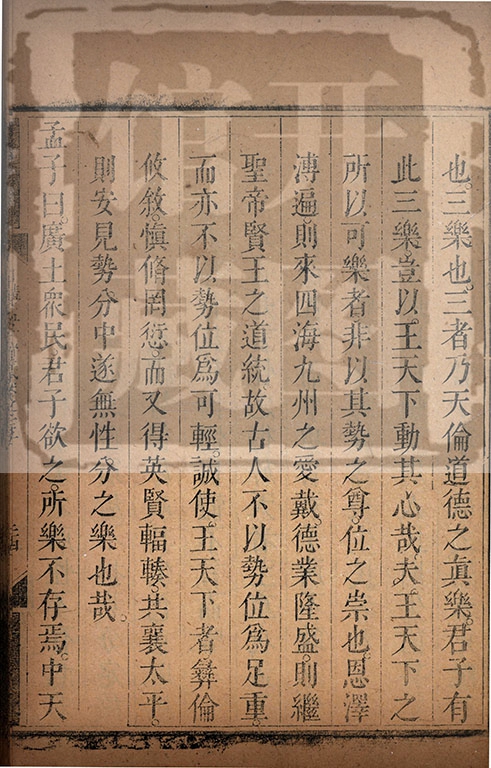 也三樂也三者乃天倫道德之眞樂君子有
此三樂豈以王天下動其心哉夫王天下之
所以可樂者非以其勢之尊位之崇也恩澤
溥遍則來四海九州之愛戴德業隆盛則繼
聖帝賢王之道統故古人不以勢位爲足重
而亦不以勢位爲可輕誠使王天下者彝倫
攸敘愼脩罔愆而又得英賢輻輳共襄太平
則安見勢分中遂無性分之樂也哉
孟子曰廣土衆民君子欲之所樂不存焉中天